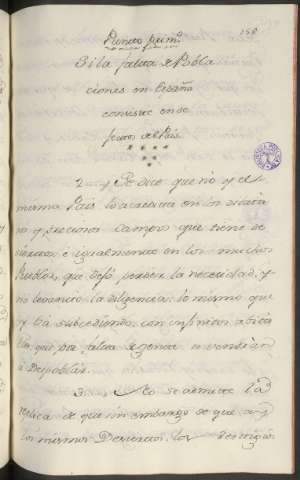 158
Punto prim.º
Si la falta de Pobla
ciones en España
consiste en de
fectos del País.
2 Se dice que no, y el
mismo País lo acredita en los dilata
dos y preciosos campos que tiene de
siertos e igualmente en los muchos
Pueblos, que dejó perder la necesidad, y
no levantó la diligencia: lo mismo que
vá subcediendo con infinitos
que por falta de gente
á Despoblar.
3 No se admite la
replica de que sin embargo de que
los mismos Desiertos, los